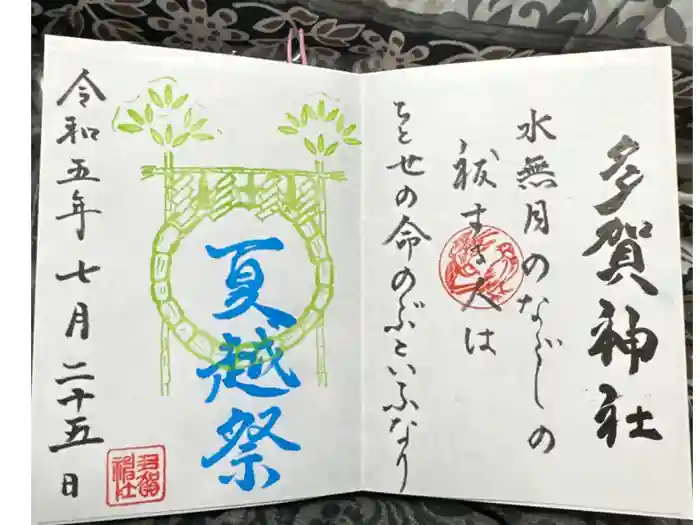 多賀神社
水無月のなごしの
祓する人は
ちとせの命のぶといふなり
夏越祭
令和五年七月二十五日
多賀神社